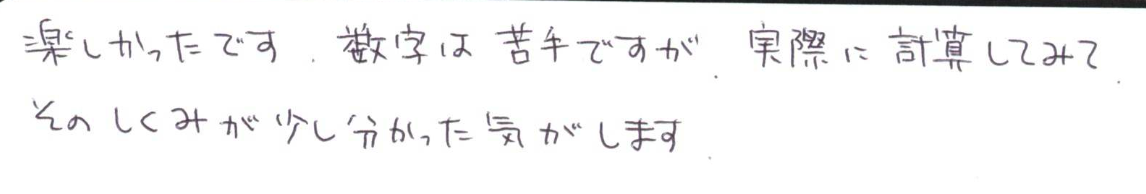 楽しかったです. 数字は苦手ですが. 実際に計算してみて.
そのしくみが少し分かった気がします.